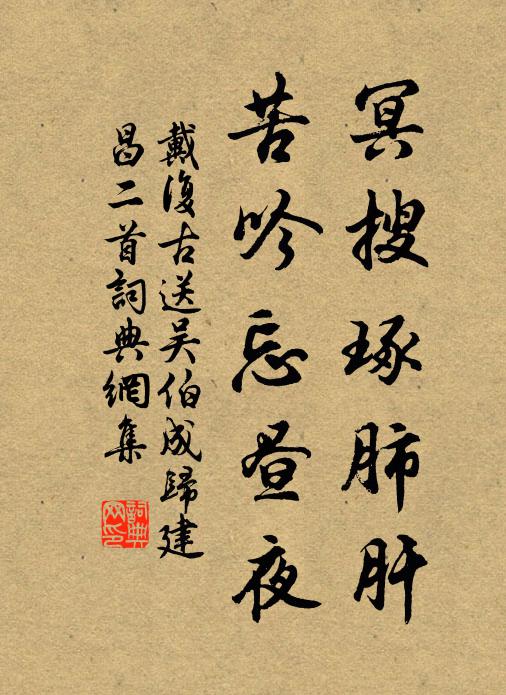 冥搜琢肺肝
苦吟忘昼夜
戴復古送吴伯成歸建
昌二首詞典網集
詞典
网印